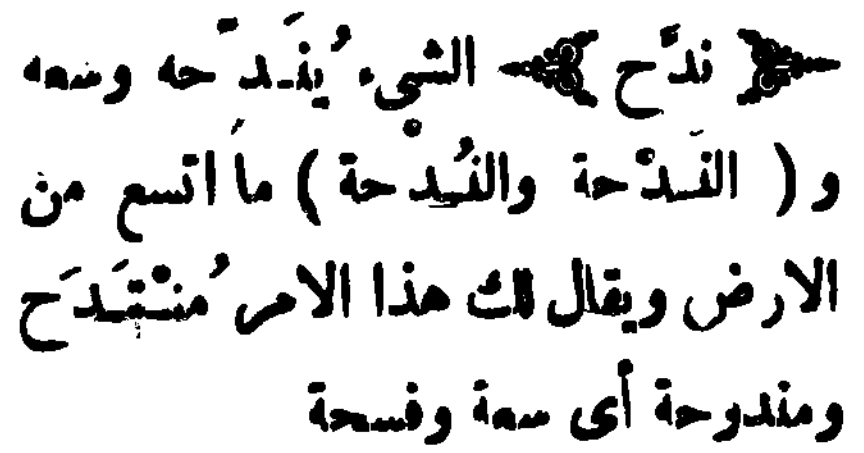 ﴿ ندَّح ﴾ الشيء يُنَدّحه وسعه
و ( النَدْحة والنُدْحة ) ما اتسع من
الارض ويقال لك هذا الامر مُنْتَدَح
ومندوحة أى سعة وفسحة